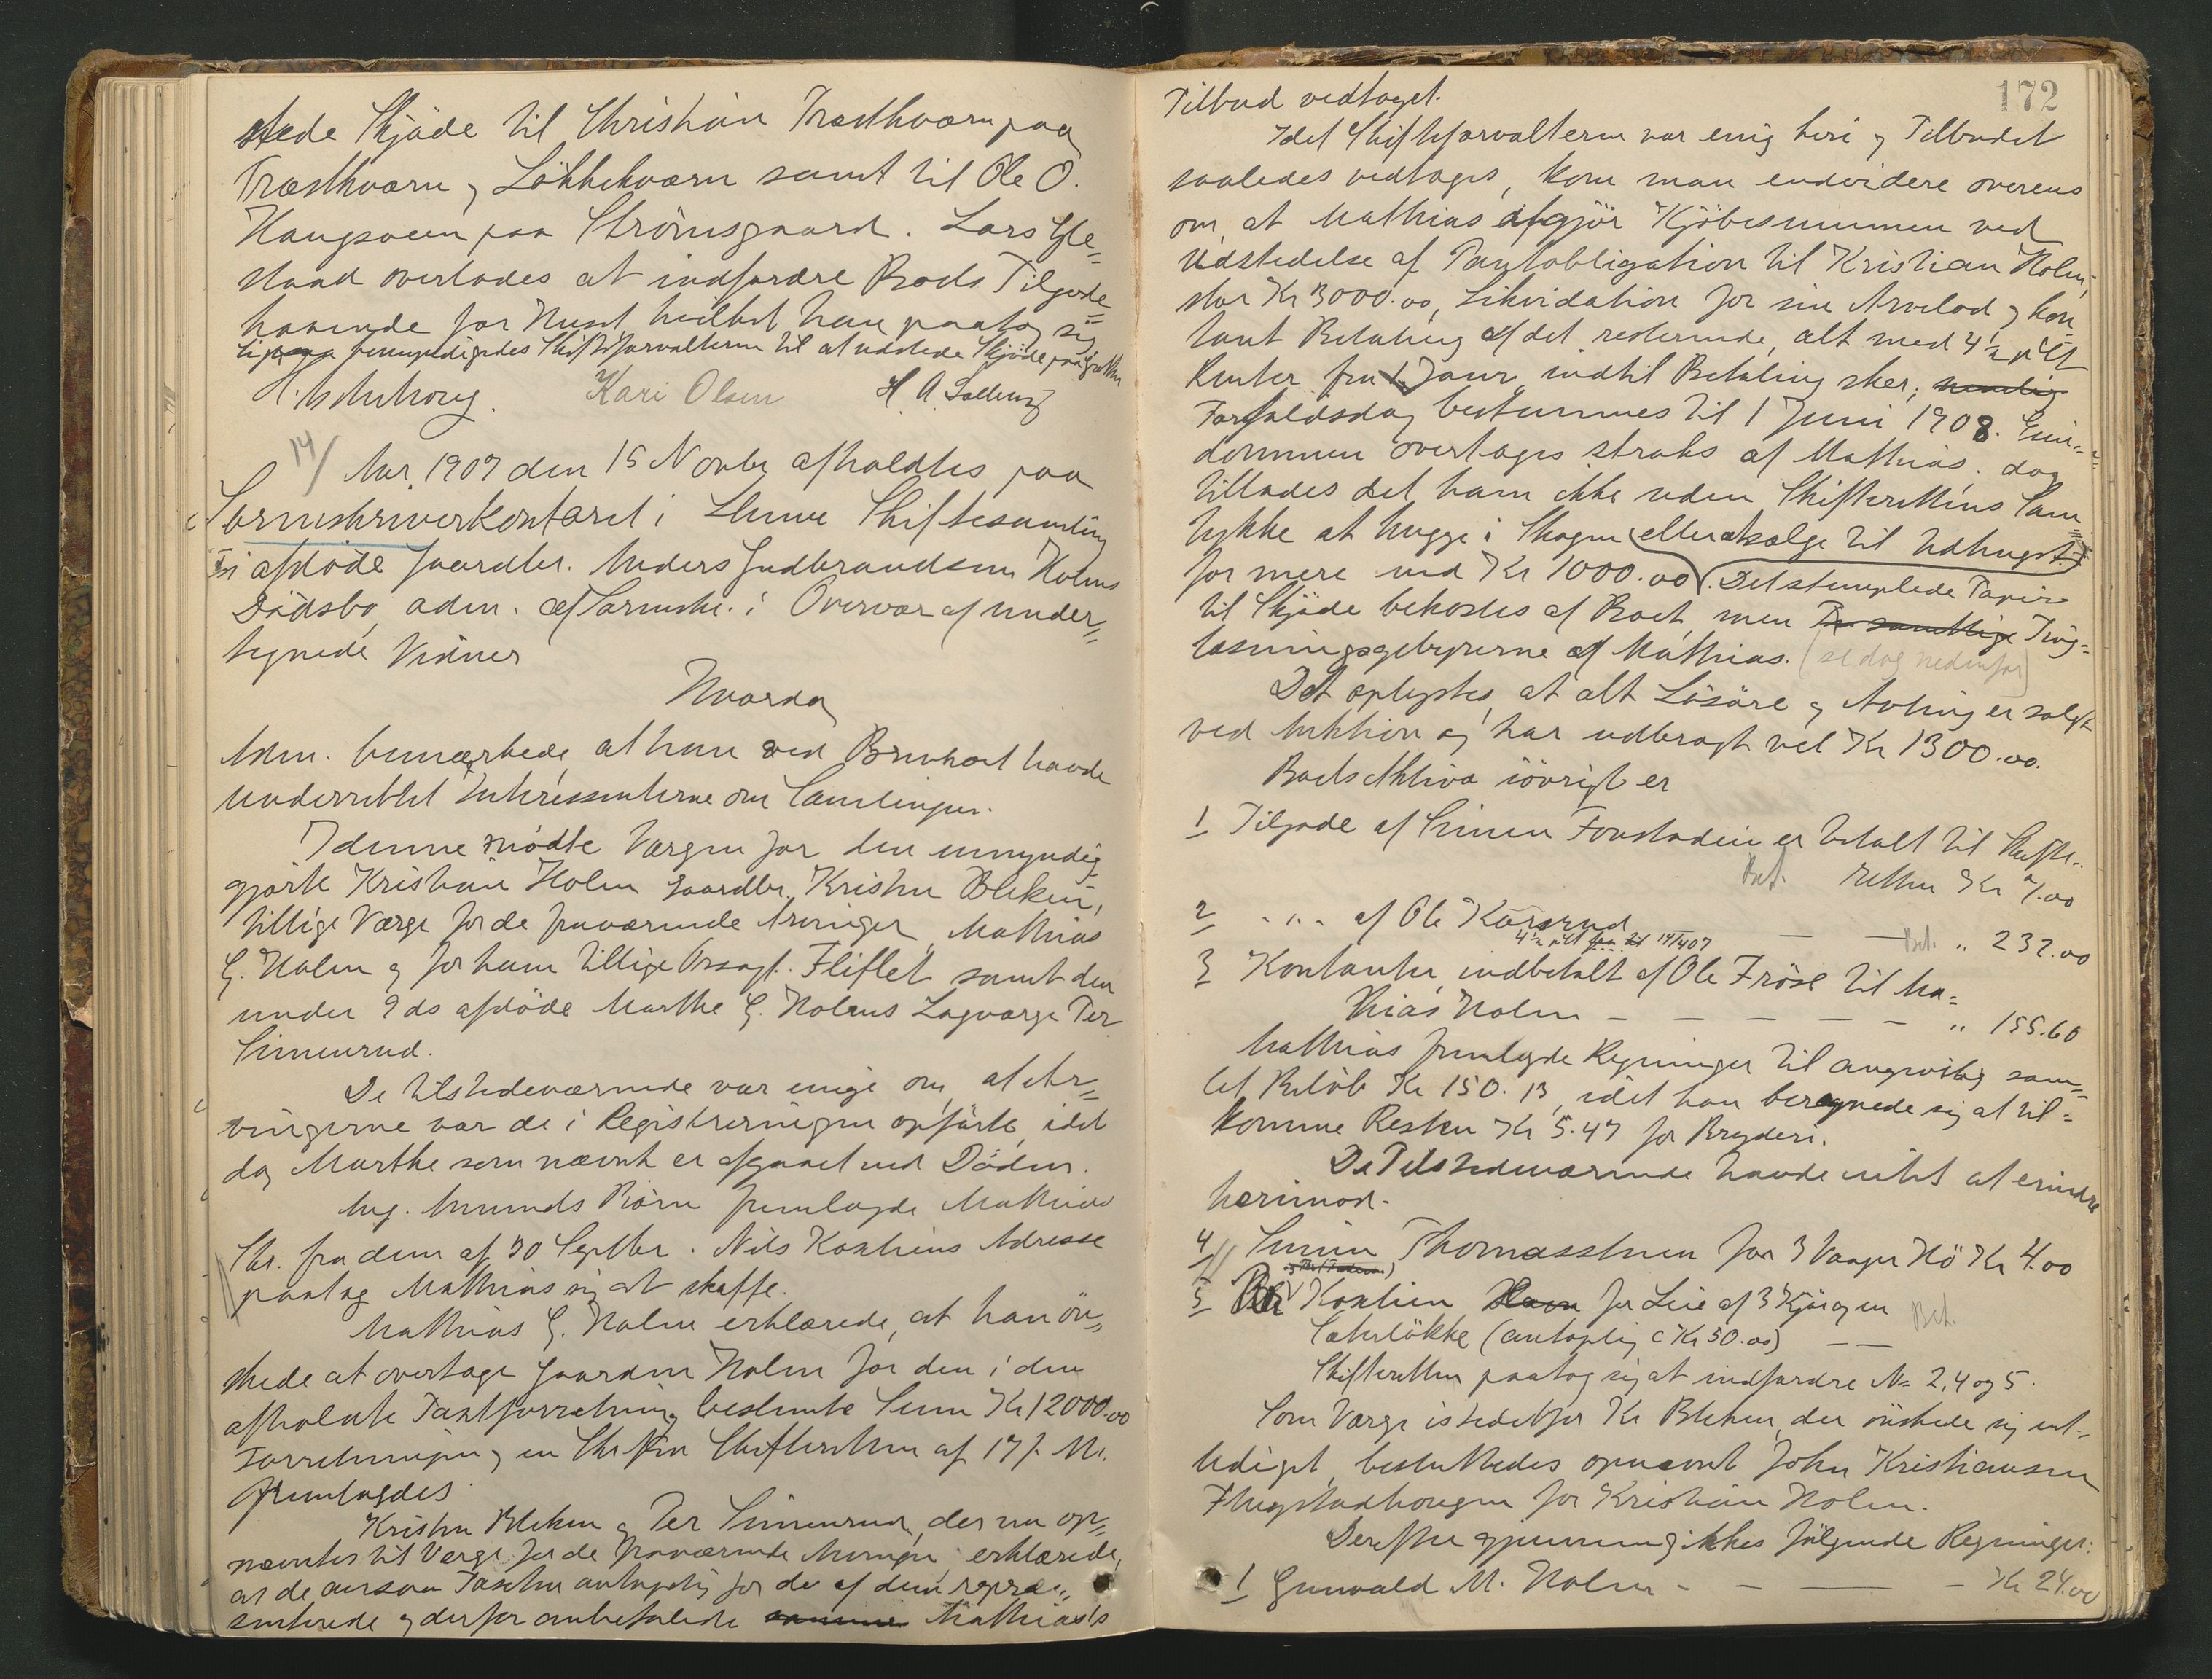 stede Skjöde til Christian Træsthværn paa
Træsthværn og Løkkekværn samt til Ole O.
Haugsveen paa Strömsgaard. Lars Gle=
staad overlodes at indfordre Boets Tilgode=
havende for Huset, hvilket han paatog sig
ligesaa bemyndigedes Skifteforvalteren til at udstede Skjöde paa
Kari Olsen H. A. Solberg
14/ Aar 1907 den 15 Novbr afholdtes paa
Sorenskriverkontoret i Skiftesamling
i afdöde Gaardbr. Anders Gudbrandsen Holms
Dödsbo, adm. af Sorenskr. i Overvær af under=
tegnede Vidner
Hvorda
Adm. bemærkede, at han ved Brevkort havde
underrettet Interessenterne om Samlingen.
I denne mödte Værgen for den umyndig
gjorte Kristian Holm Gaardbr. Kristen Bleken,
tillige Værge for de fraværende Arvinger, Mathias
G. Holm og for ham tillige Ovsagf. Fliflet samt den
under 9 ds afdöde Marthe G. Holms Lagværge Per
Simenrud.
De tilstedeværende var enige om, at Ar=
vingerne var de i Registreringen opförte, idet
dog Marthe som nævnt er afgaaet ved Döden.
Ang. Amunds Börn fremlagde Mathias
Skr. fra dem af 30 Septbr. Nils Koxhiens Adresse
paatog Mathias sig at skaffe.
Mathias G. Holm erklærede, at han ön=
skede at overtage Gaarden Holm for den i den
afholdte Taxtforretning bestemte Sum Kr 12000.00
Forretningen og en Skr fra Skifteretten af 17 f. M.
fremlagdes.
Kristen Bleken og Per Simenrud, der nu op=
nævntes til Værge for de fraværende Arvinger erklærede,
at de ansaa Taxten antagelig for de af dem repræ=
senterede og derfor anbefalede Mathias's
172
Tilbud vedtaget.
Idet Skifteforvalteren var enig heri og Tilbudet
saaledes vedtages, kom man endvidere overens
om, at Mathias afgjör Kjöbesummen ved
Udstedelse af Pantobligation til Kristian Holm,
stor Kr 3000.00, Likvidation for sin Arvelod og kon=
tant Betaling af det resterende, alt med 4½ pCt
Renter fra 1. Januar indtil Betaling sker, nemlig
Forfaldsdag bestemmes til 1 Juni 1908. Eien=
dommen overtages straks af Mathias. dog
tillades det ham ikke uden Skifterettens Sam=
tykke at hugge i Skogen eller at sælge til Udhugst
for mere end Kr 1000.00. Det stemplede Papir
til Skjöde bekostes af Boet, men De samtlige Ting=
læsningsgebyrerne af Mathias. (se dog nedenfor)
Det oplystes, at alt Lösöre og Avling er solgt
ved Auktion og har udbragt vel Kr 1300.00.
Boets Aktiva iövrigt er
1 Tilgode af Simen Fonstadeie er betalt til Skifte=
Bet. retten Kr 7.00
2 - " - af Ole Kösrud — — Bet. " 232.00
4½ pCt fra 14/4 07
3 Kontanter, indbetalt af Ole Fröse til Ma=
thias Holm — — — — — " 155.60
Mathias fremlagde Regninger til angivelig sam=
let Belöb Kr 150.13, idet han beregnede sig at til=
komme Resten Kr 5.47 for Bryderi.
De Tilstedeværende havde intet at erindre
herimod.
4 Simen Thomasstuen for 3 Vaager Hö Kr 4.00
5 Koxhien for Leie af 3 Kjör og en
Sæterlökke (antagelig c Kr 50.00) — — Bet.
Skifteretten paatog sig at indfordre No 2, 4 og 5.
Som Værge istedetfor Kr Bleken, der önskede sig ent=
lediget, besluttedes opnævnt John Kristiansen
Flugstadhougen for Kristian Holm.
Derefter gjennemgikkes fölgende Regninger:
1 Gunvald M. Holm - - — - Kr 24.00